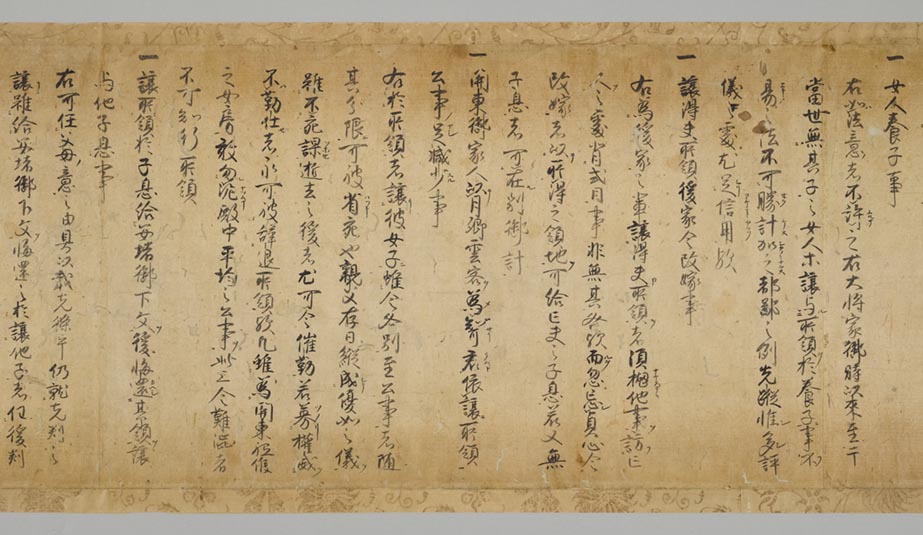 一 女人養子事
右如法意者不許之右大将家御時以来至于
當世無其子之女人等讓与所領於養子事不
易之法不可勝計加之都鄙之例先蹤惟多評
儀之處尤足信用歟
一 讓得夫所領後家令改嫁事
右為後家之輩讓得夫所領者須抛他事訪亡
人之處背式目事非無其咎歟而忽忘貞心令
改嫁者以所得之領地可給亡夫之子息若又無
子息者可在別御計
一 関東御家人以月卿雲客為聟君依讓所領
公事足減少事
右於所領者讓彼女子雖令各別至公事者随
其分限可被省宛也親父存日縱成優如之儀
雖不宛課逝去之後者尤可令催勤若募權威
不勤仕者永可被辞退所領歟凡雖為関東祗候
之女房敢勿泥殿中平均之公事此上令難澁者
不可知行所領
一 讓所領於子息給安堵御下文後悔還其領讓
与他子息事
右可任父母意之由具以載先條畢仍就先判之
讓雖給安堵御下文悔還之於讓他子者任後判